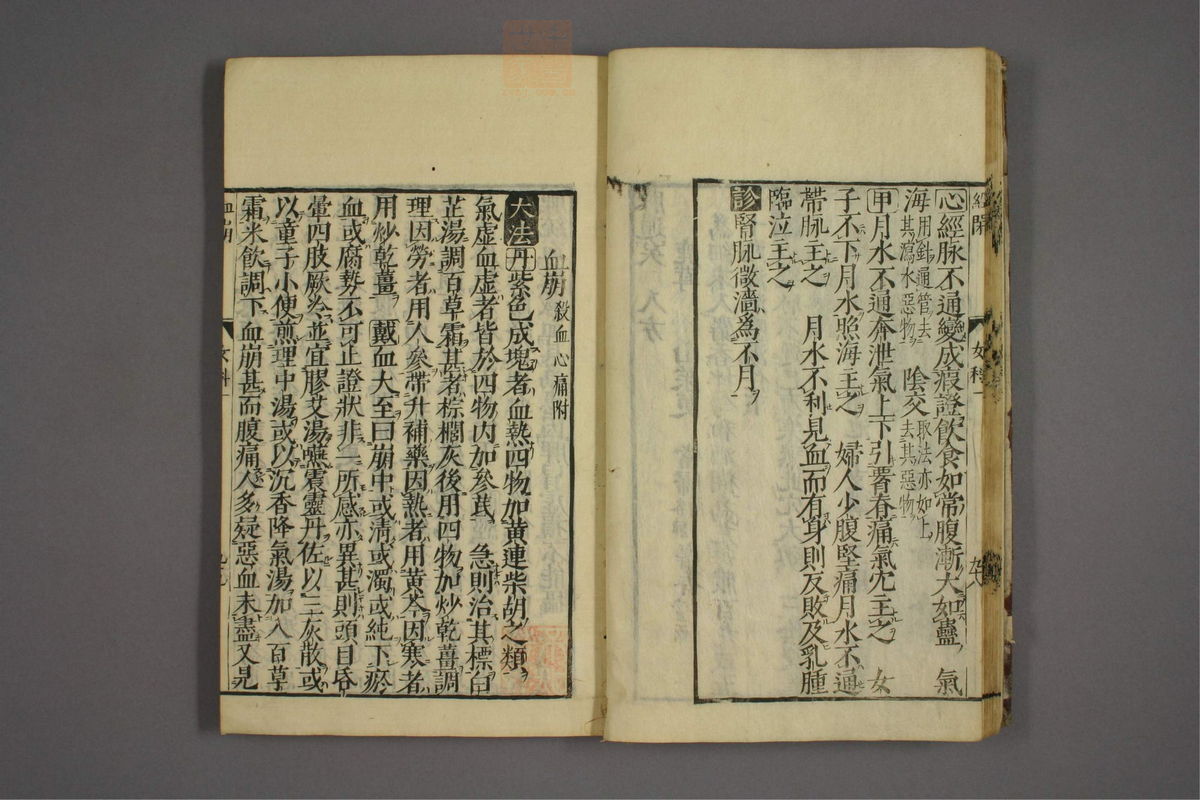 心經脉不通變成瘕證飲食如常腹漸大如蠱 氣
海用針通管去其瀉水惡物 陰交取法亦如上去其惡物
甲月水不通奔泄氣上下引脊痛氣穴主之 女
子不下月水照海主之 婦人少腹堅痛月水不通
帶脉主之 月水不利見血而有身則反敗及乳腫
臨泣主之
診腎脉微濇爲不月
血崩殺血心痛附
大法丹紫色成塊者血熱四物加黄連柴胡之類
氣虚血虚者皆於四物内加參芪 急則治其標白
芷湯調百草霜甚者棕櫚灰後用四物加炒乾薑調
理因勞者用人參帶升補藥因熱者用黄芩因寒者
用炒乾薑 戴血大至曰崩中或清或濁或純下瘀
血或腐勢不可止證狀非一所感亦異甚則頭目昏
暈四肢厥冷並宜膠艾湯嚥震靈丹佐以三灰散或
以童子小便煎理中湯或以沉香降氣湯加入百草
霜米飲調下血崩甚而腹痛人多疑惡血未盡又見
血崩
女科一